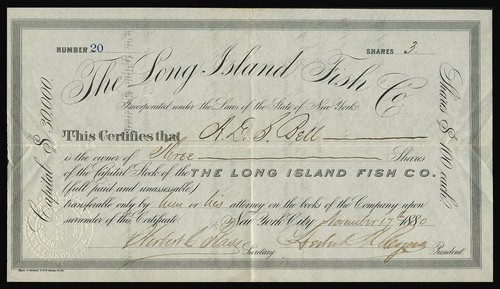 NUMBER 20
SHARES 3
The Long Island Fish Co.
Incorporated under the Laws of the State of New York.
Capital $ 30,000.
Shares $ 100 each.
This Certifies that
Bell
is the owner of Three Shares
of the Capital Stock of the THE LONG ISLAND FISH CO.
(full paid and unassessable)
transferable only by him or his attorney on the books of the Company upon
surrender of this Certificate. New York City November 17th 1880
Secretary.
President.